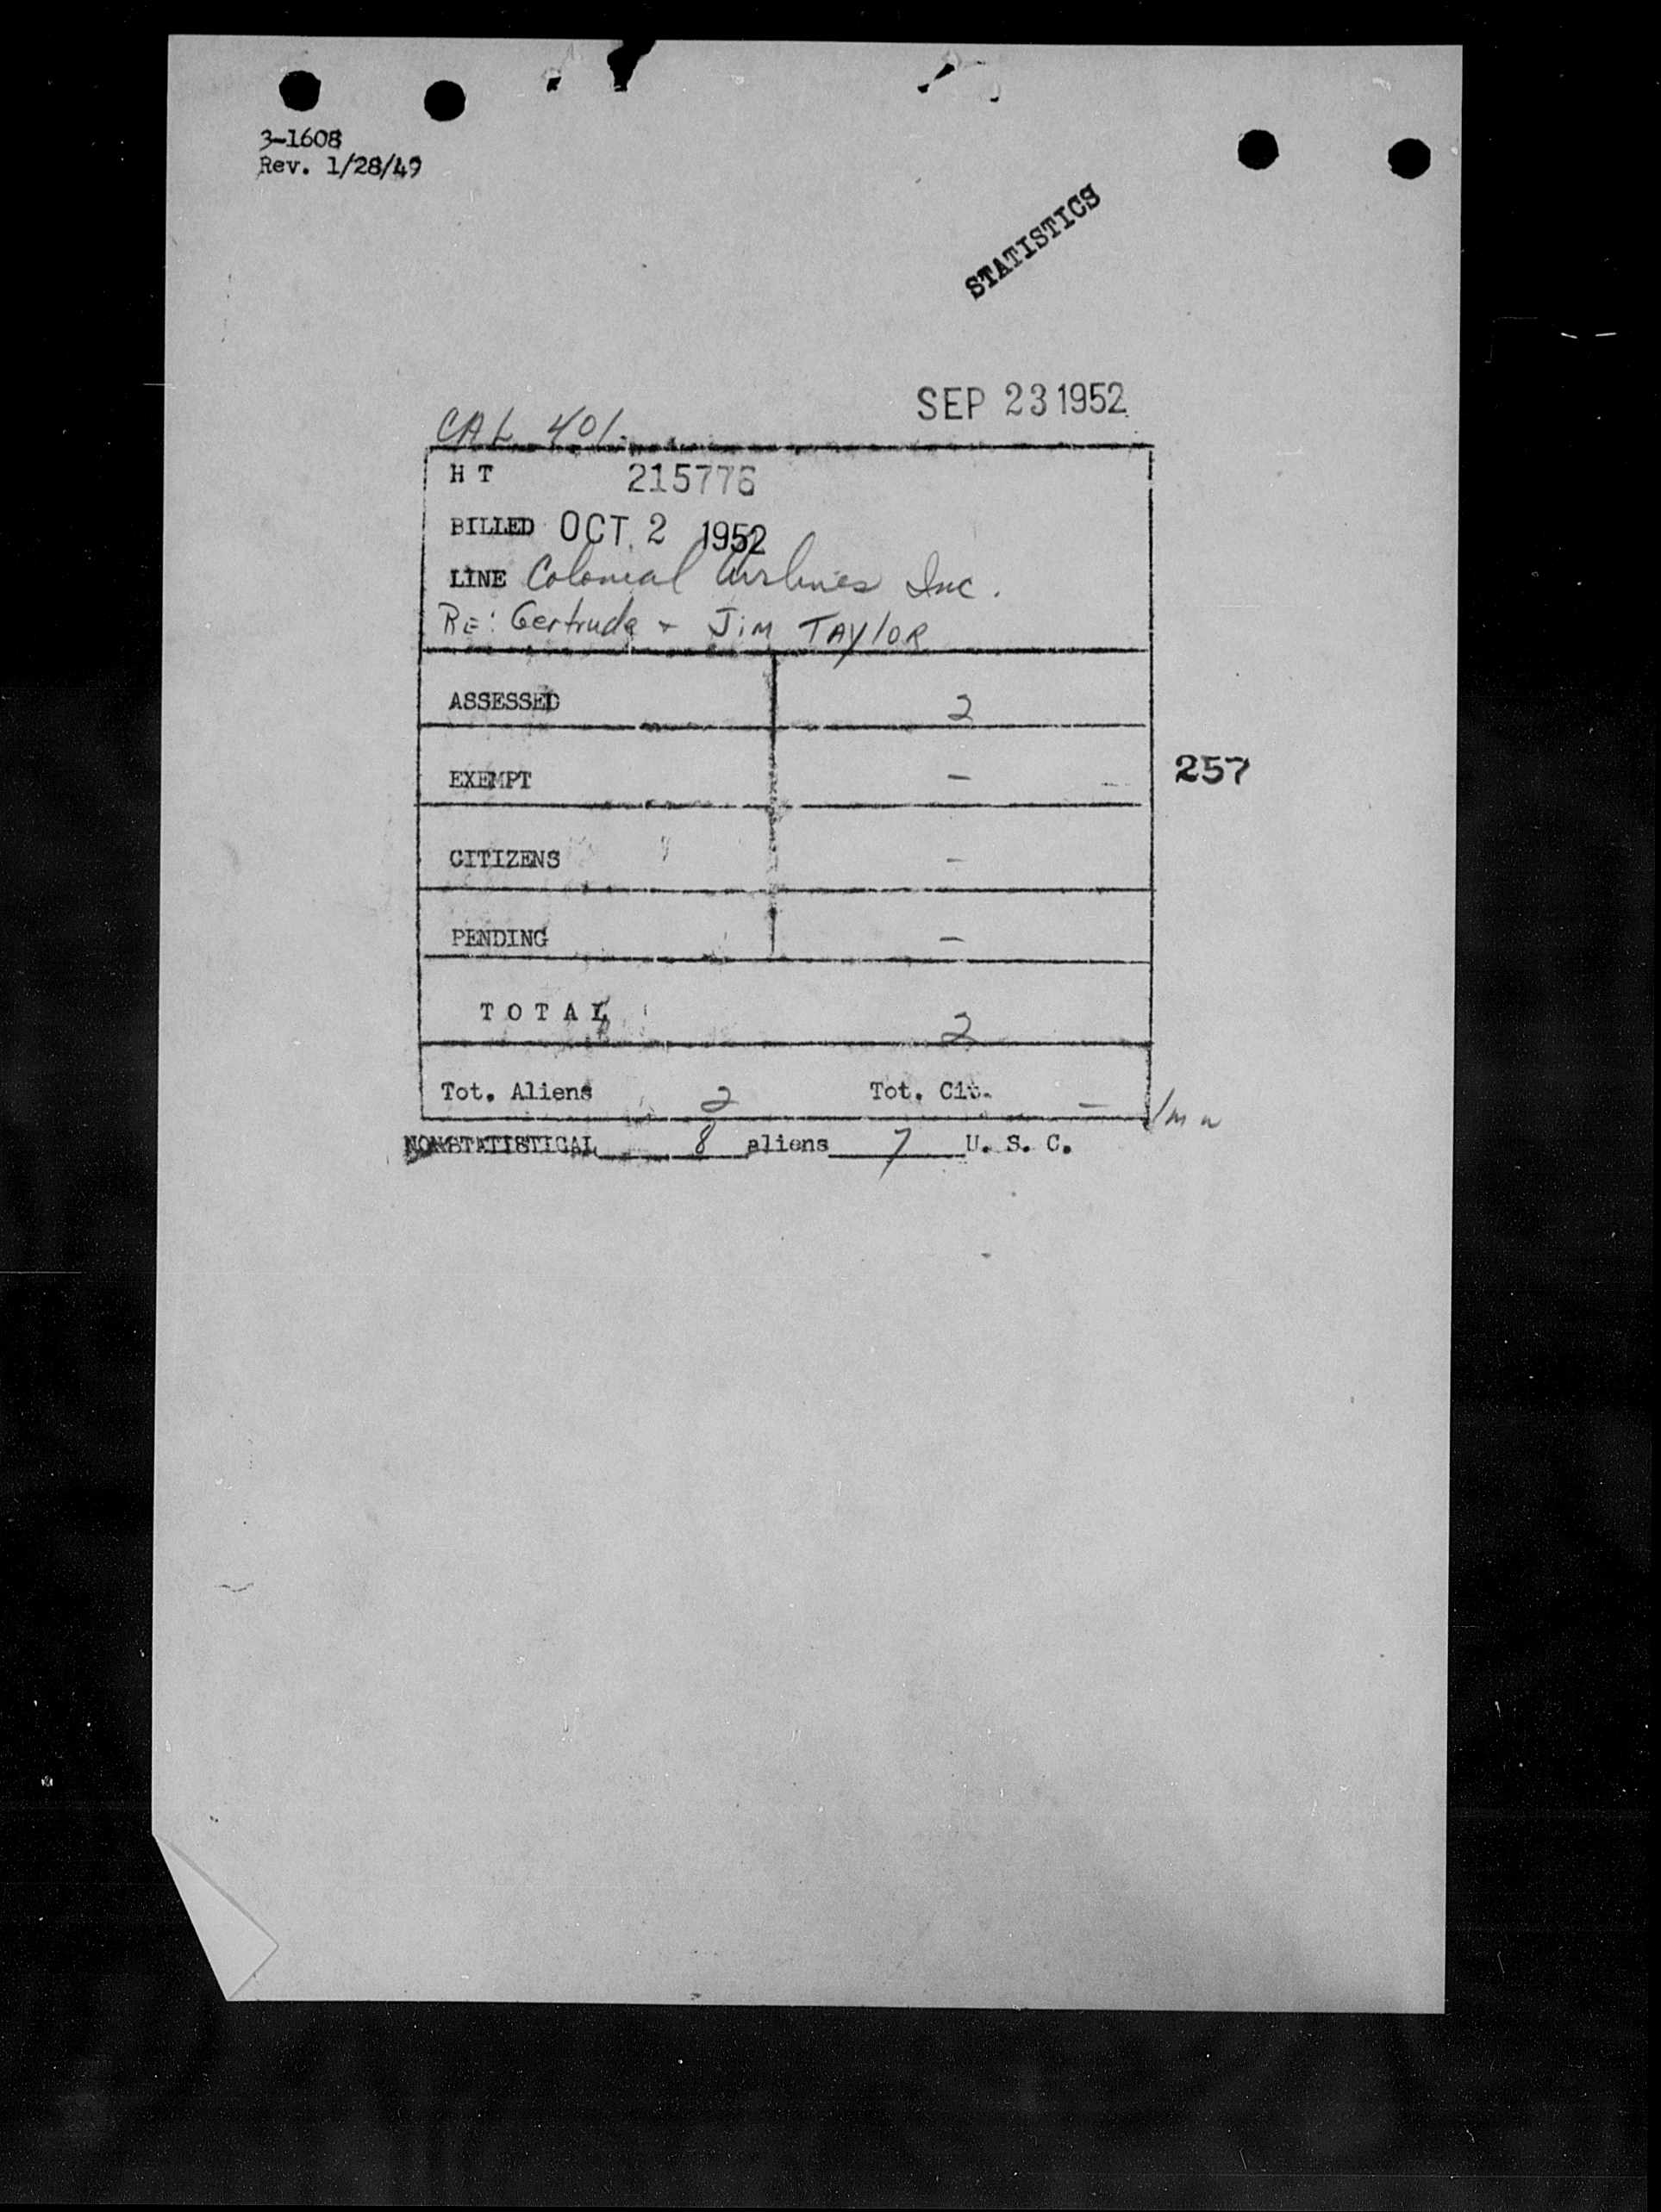 3-1608
Rev. 1/28/49
STATISTICS
SEP 23 1952
CAL 401
H T 215776
BILLED OCT 2 1952
LINE Colonial Airlines Inc.
RE: Gertrude + Jim TAYLOR
ASSESSED 2
EXEMPT -
257
CITIZENS -
PENDING -
T O T A L 2
Tot. Aliens 2 Tot. Cit. -
NONSTATISTICAL 8 aliens 7 U. S. C.